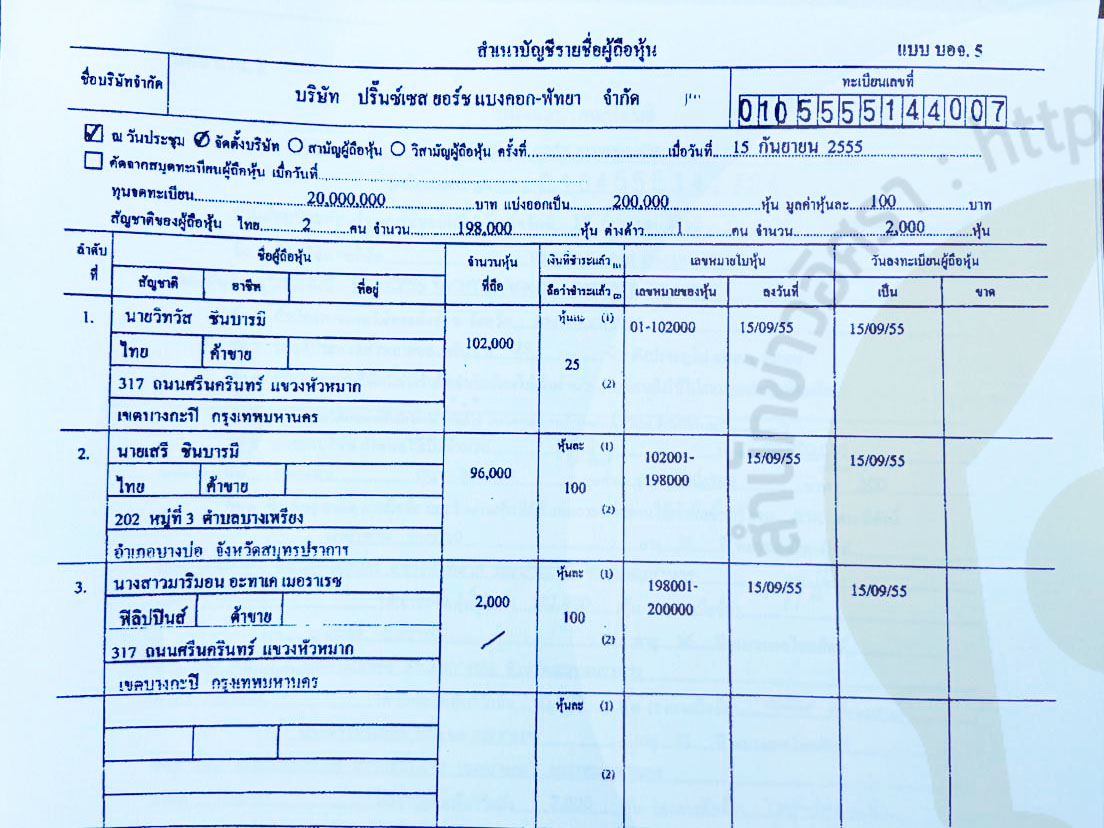 สำเนาบัญชีรายชื่อผู้ถือหุ้น
แบบ บอจ. 5
ชื่อบริษัทจำกัด
บริษัท ปริ๊นซ์เซส ยอร์ช แบงคอก-พัทยา จำกัด
ทะเบียนเลขที่
0105555144007
ณ วันประชุม จัดตั้งบริษัท สามัญผู้ถือหุ้น วิสามัญผู้ถือหุ้น ครั้งที่ เมื่อวันที่ 15 กันยายน 2555
คัดจากสมุดทะเบียนผู้ถือหุ้น เมื่อวันที่
ทุนจดทะเบียน 20,000,000 บาท แบ่งออกเป็น 200,000 หุ้น มูลค่าหุ้นละ 100 บาท
สัญชาติของผู้ถือหุ้น ไทย 2 คน จำนวน 198,000 หุ้น ต่างด้าว 1 คน จำนวน 2,000 หุ้น
ลำดับที่ ชื่อผู้ถือหุ้น จำนวนหุ้นที่ถือ เงินที่ชำระแล้ว (1) เลขหมายใบหุ้น วันลงทะเบียนผู้ถือหุ้น
สัญชาติ อาชีพ ที่อยู่ ถือว่าชำระแล้ว (2) เลขหมายของหุ้น ลงวันที่ เป็น ขาด
1. นายวิทวัส ชินบารมี 102,000 หุ้นละ (1) 25 01-102000 15/09/55 15/09/55
ไทย ค้าขาย
317 ถนนศรีนครินทร์ แขวงหัวหมาก (2)
เขตบางกะปี กรุงเทพมหานคร
2. นายเสรี ชินบารมี 96,000 หุ้นละ (1) 100 102001-198000 15/09/55 15/09/55
ไทย ค้าขาย
202 หมู่ที่ 3 ตำบลบางเพรียง (2)
อำเภอบางบ่อ จังหวัดสมุทรปราการ
3. นางสาวมาริมอน อะทาเค เมอราเรซ 2,000 หุ้นละ (1) 100 198001-200000 15/09/55 15/09/55
ฟิลิปปินส์ ค้าขาย
317 ถนนศรีนครินทร์ แขวงหัวหมาก (2)
เขตบางกะปี กรุงเทพมหานคร
หุ้นละ (1)
(2)
สำนักข่าวอิศรา : http